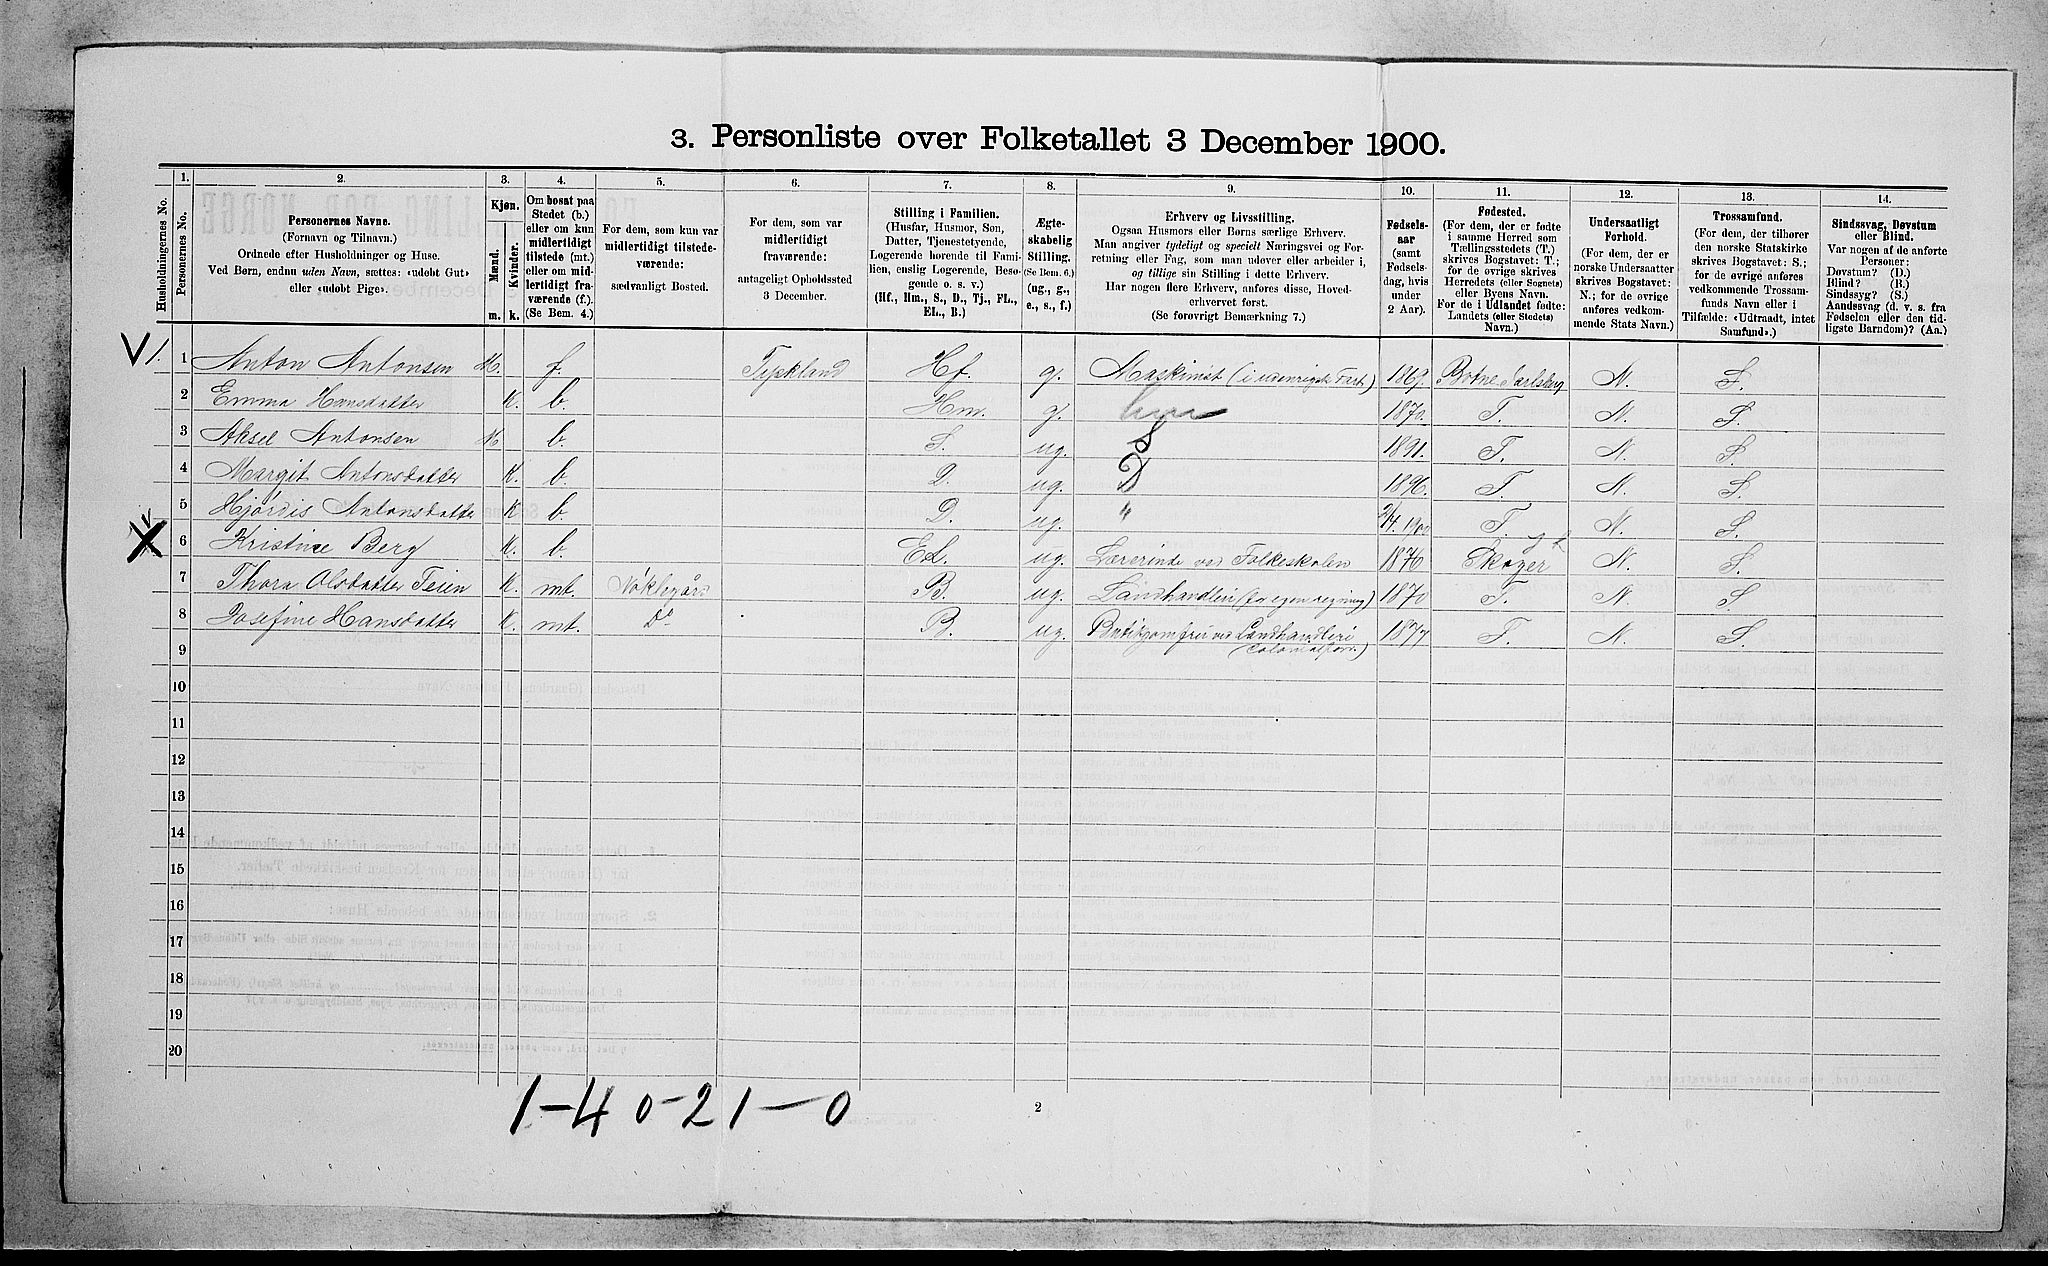 3. Personliste over Folketallet 3 December 1900.
1. 2. 3. 4. 5. 6. 7. 8. 9. 10. 11. 12. 13. 14.
Husholdningernes No.
Personernes No.
Personernes Navne.
(Fornavn og Tilnavn.)
Ordnede efter Husholdninger og Huse.
Ved Børn, endnu uden Navn, sættes: «udøbt Gut»
eller «udøbt Pige».
Kjøn.
Mænd.
Kvinder.
m. k.
Om bosat paa
Stedet (b.)
eller om kun
midlertidigt
tilstede (mt.)
eller om mid-
lertidigt fra-
værende (f.).
(Se Bem. 4.)
For dem, som kun var
midlertidigt tilstede-
værende:
sædvanligt Bosted.
For dem, som var
midlertidigt
fraværende:
antageligt Opholdssted
3 December.
Stilling i Familien.
(Husfar, Husmor, Søn,
Datter, Tjenestetyende,
Logerende hørende til Fami-
lien, enslig Logerende, Besø-
gende o. s. v.)
(Hf., Hm., S., D., Tj., FL.,
EL., B.)
Ægte-
skabelig
Stilling.
(Se Bem. 6.)
(ug., g.,
e., s., f.)
Erhverv og Livsstilling.
Ogsaa Husmors eller Børns særlige Erhverv.
Man angiver tydeligt og specielt Næringsvei og For-
retning eller Fag, som man udover eller arbeider i,
og tillige sin Stilling i dette Erhverv.
Har nogen flere Erhverv, anføres disse, Hoved-
erhvervet først.
(Se forøvrigt Bemærkning 7.)
Fødsels-
aar
(samt
Fødsels-
dag, hvis
under
2 Aar).
Fødested.
(For dem, der er fødte
i samme Herred som
Tællingsstedets (T.)
skrives Bogstavet: T.;
for de øvrige skrives
Herredets (eller Sognets)
eller Byens Navn.
For de i Udlandet fødte:
Landets (eller Stedets)
Navn.)
Undersaatligt
Forhold.
(For dem, der er
norske Undersaatter
skrives Bogstavet:
N.; for de øvrige
anføres vedkom-
mende Stats Navn.)
Trossamfund.
(For dem, der tilhører
den norske Statskirke
skrives Bogstavet: S.;
for de øvrige anføres
vedkommende Trossam-
funds Navn eller i
Tilfælde: «Udtraadt, intet
Samfund».)
Sindssvag, Døvstum
eller Blind.
Var nogen af de anførte
Personer:
Døvstum? (D.)
Blind? (B.)
Sindssyg? (S.)
Aandssvag (d. v. s. fra
Fødselen eller den tid-
ligste Barndom)? (Aa.)
1. 1 Anton Antonsen M. f. Tyskland Hf. g. Maskinist (i udenrigsk Fart) Botne Jarlsberg N. S.
2 Emma Hansdatter K. b. Hm. g. 1870. T. N. S.
3 Aksel Antonsen M b. S. ug. S 1891. T. N. S.
4 Margit Antonsdatter K. b. D. ug. D 1896. T. N. S.
5 Hjördis Antonsdatter K b. D. ug. " 2/4. 1900 T. N. S.
6 Kristine Berg K. b. EL. ug. Lærerinde ved Folkeskolen 1876 Skoger N. S.
7 Thora Olsdatter Teien K. mt. Nøklegård B. ug. Landhandleri (for egen regning) 1870 T. N. S.
8 Josefine Hansdatter K. mt. Do B. ug. Butikjomfru ved Landhandleri 1877 T. N. S.
(Colonialforr.)
9
10
11
12
13
14
15
16
17
18
19
20
1-4 0-2 1-0
2